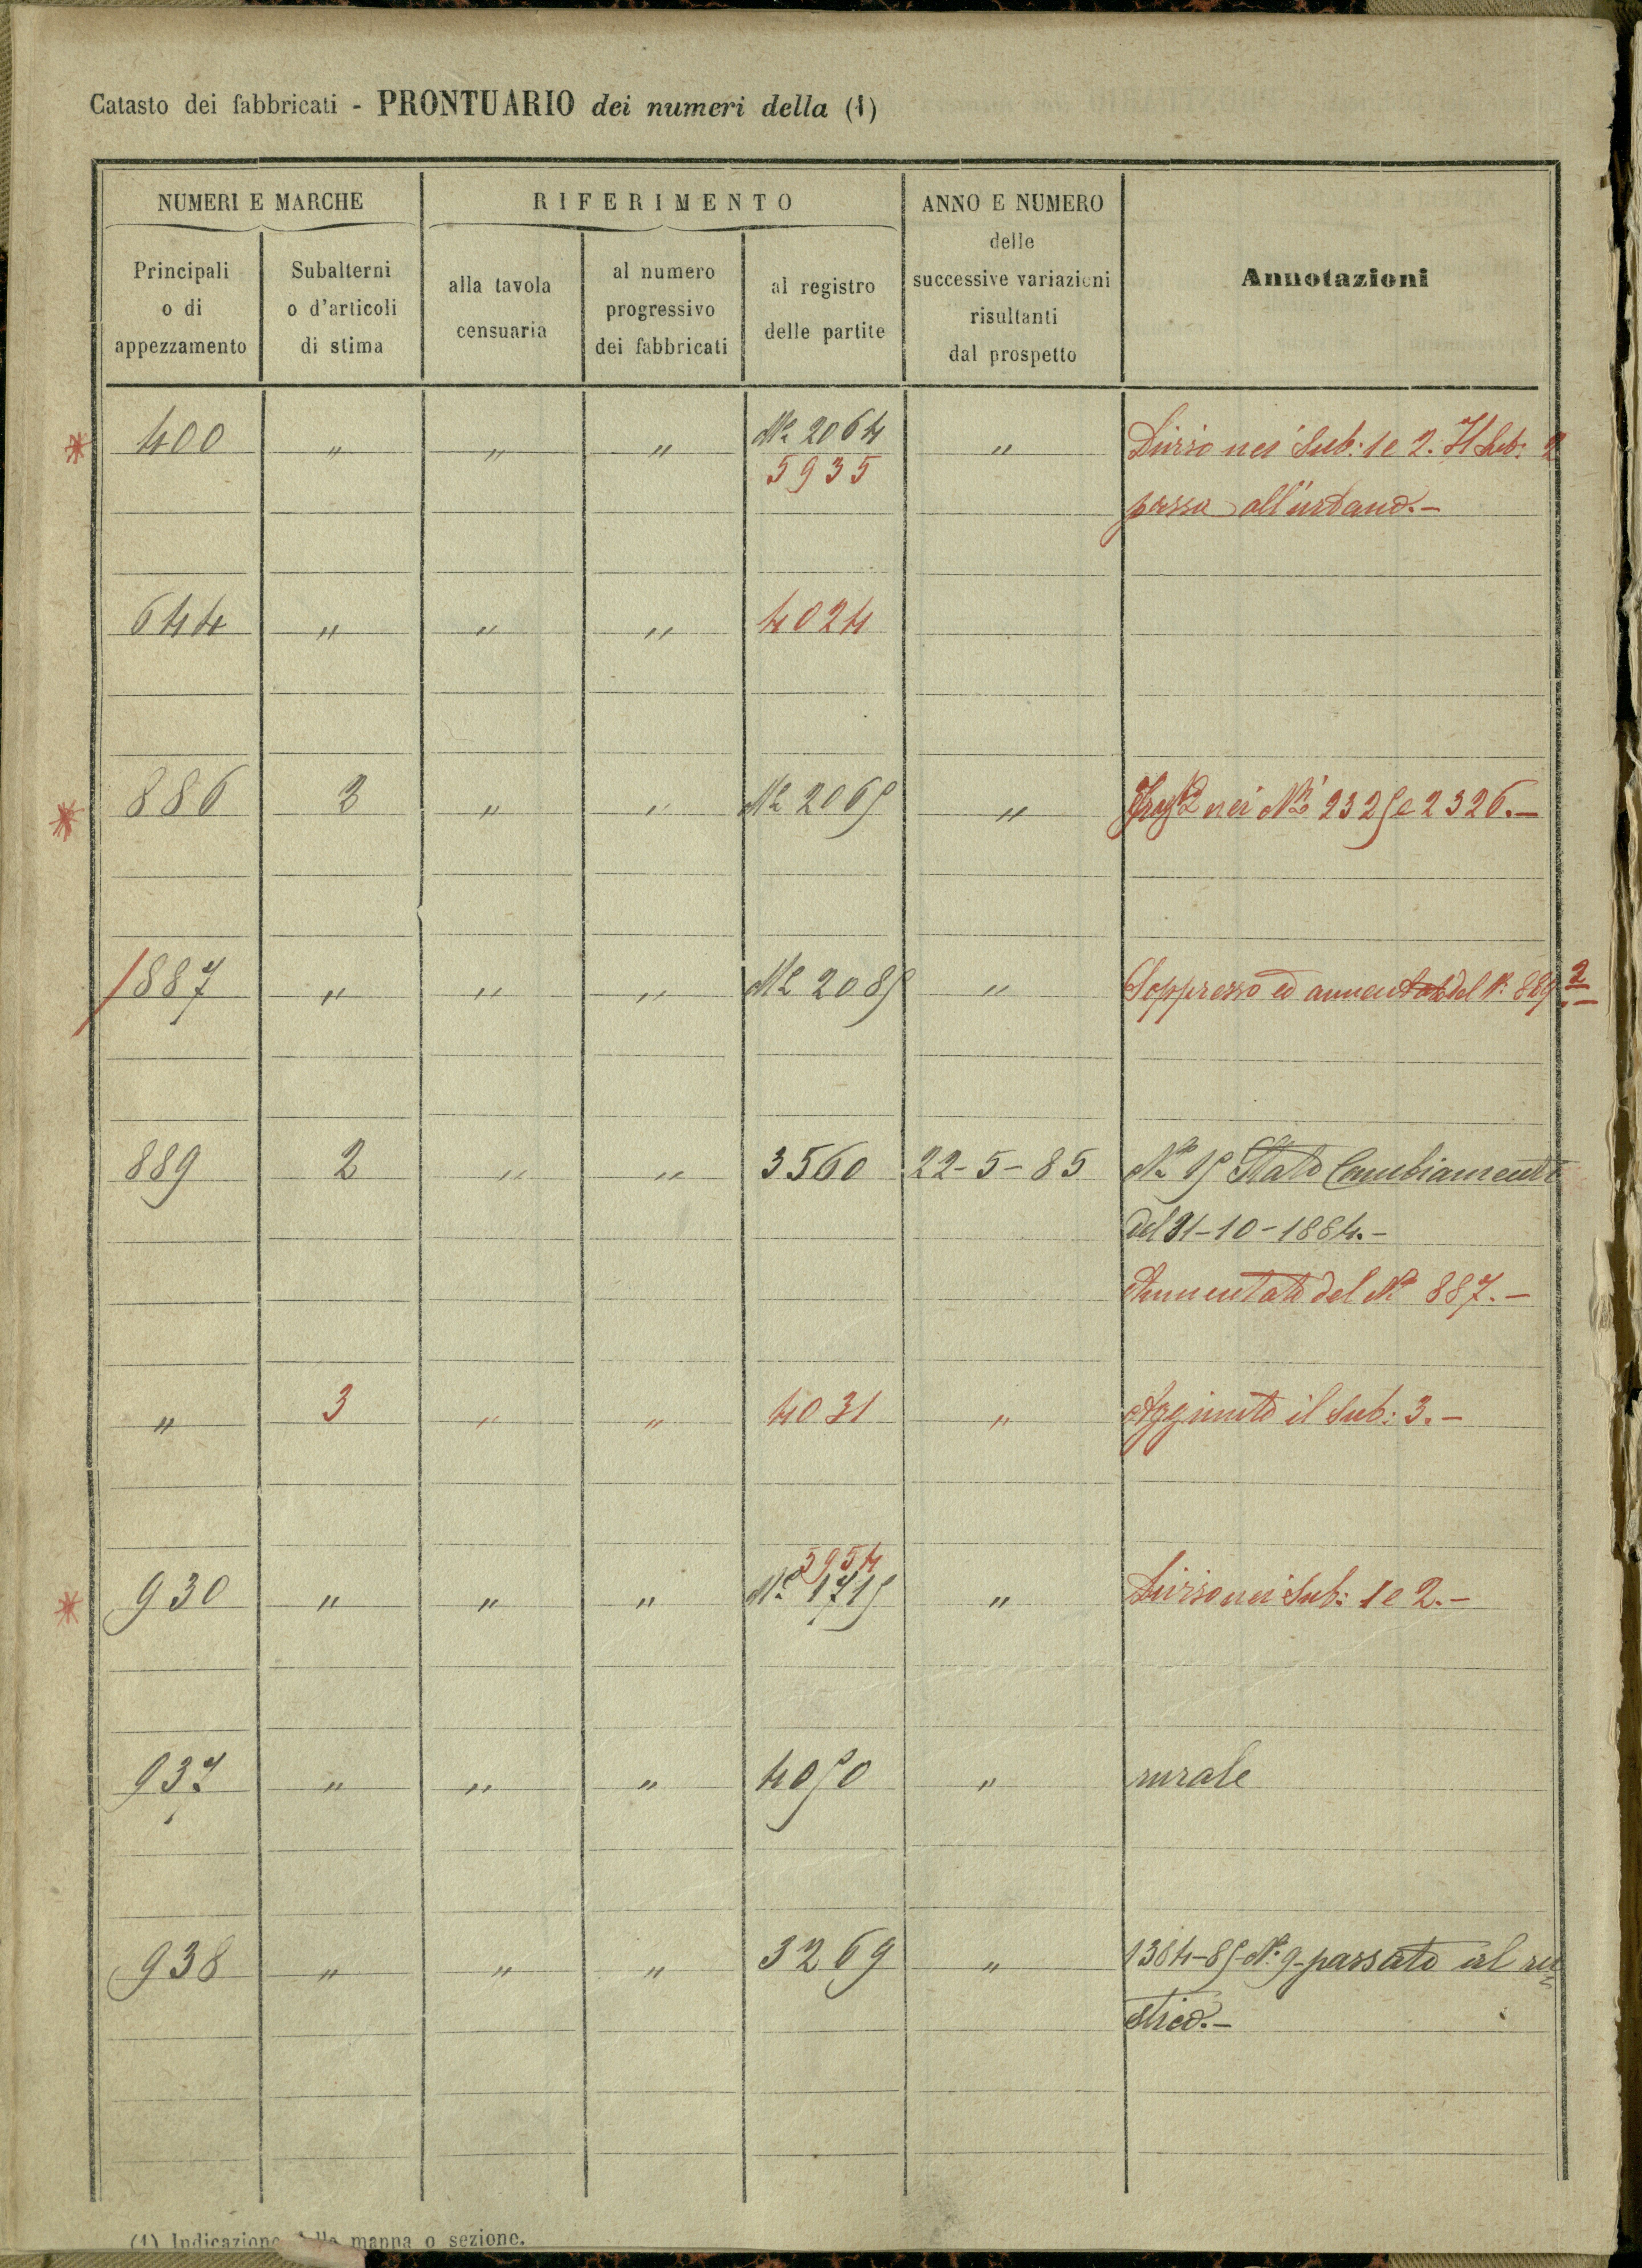 Catasto dei fabbricati - PRONTUARIO dei numeri della (1)
NUMERI E MARCHE
RIFERIMENTO
ANNO E NUMERO
delle
successive variazioni
risultanti
dal prospetto
Annotazioni
Principali
o di
appezzamento
Subalterni
o d'articoli
di stima
alla tavola
censuaria
al numero
progressivo
dei fabbricati
al registro
delle partite
400 " " " N.° 2064 " Diviso nei Sub: 1 e 2. Il Sub: 2
5935
passa all'urbano.-
644 " " " 4024
886 2 " " N.° 2065 " nei N.i 2325 e 2326.-
887 " " " N.° 2085 " Soppresso ed aumentato del N.° 889 2
889 2 " " 3560 22-5-85 N.° 15 Stato Cambiamenti
del 31-10-1884.-
Aumentato del N.° 887.-
" 3 " " 4031 " Aggiunto il Sub: 3.-
5954
930 " " " N.° 1715 " Diviso nei Sub: 1 e 2.-
937 " " " 4050 " rurale
938 " " " 3269 " 1384-85-N.° 9-passato al ru
stico.-
(1) Indicazione della mappa o sezione.